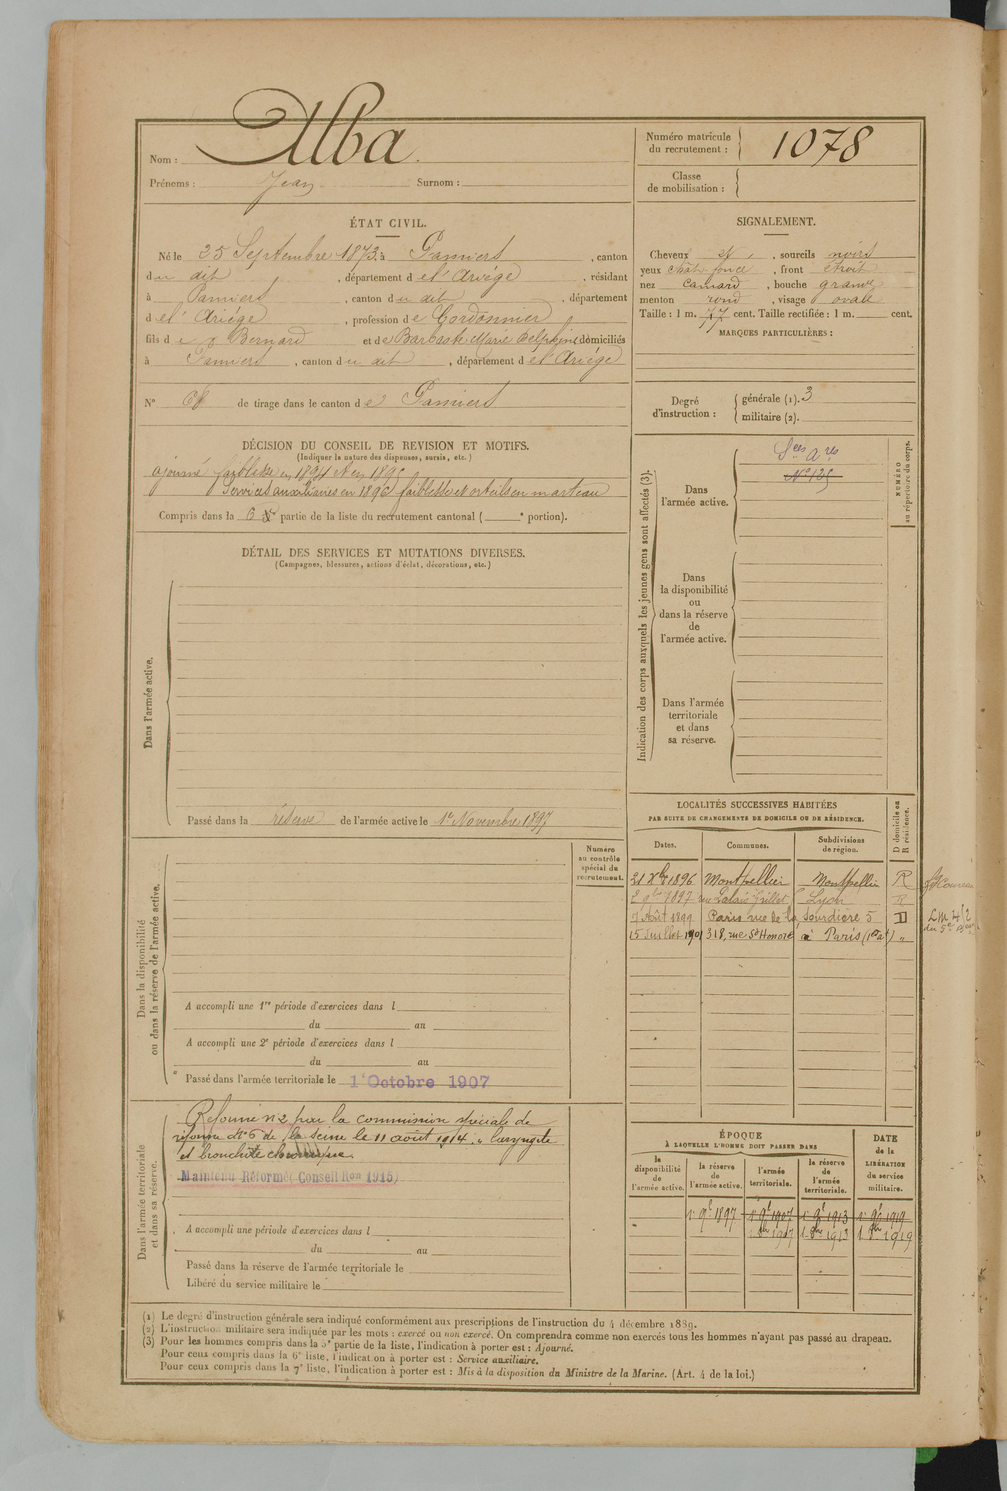 Nom : Alba
Prénoms : Jean Surnom :
Numéro matricule du recrutement : 1078
Classe de mobilisation :
ÉTAT CIVIL.
Né le 25 Septembre 1873 à Pamiers , canton
du dit , département de l'Ariége , résidant
à Pamiers , canton du dit , département
de l'Ariége , profession de Cordonnier
fils de Bernard et de Barbaste Marie Delphine domiciliés
à Pamiers , canton du dit , département de l'Ariége
No de tirage dans le canton de Pamiers
SIGNALEMENT.
Cheveux , sourcils noirs
yeux chat. foncé , front étroit
nez camard , bouche grande
menton rond , visage ovale
Taille : 1 m. 77 cent. Taille rectifiée : 1 m. cent.
MARQUES PARTICULIÈRES :
Degré d'instruction : générale (1). 3
militaire (2).
DÉCISION DU CONSEIL DE REVISION ET MOTIFS.
(Indiquer la nature des dispenses, sursis, etc.)
ajourné faiblesse en 1894 et en 1895
Services auxiliaires en 1896 faiblesse et orteils en marteau
Compris dans la 6e partie de la liste du recrutement cantonal ( e portion).
DÉTAIL DES SERVICES ET MUTATIONS DIVERSES.
(Campagnes, blessures, actions d'éclat, décorations, etc.)
Dans l'armée active.
Passé dans la réserve de l'armée active le 1er Novembre 1897
Indication des corps auxquels les jeunes gens sont affectés (3).
Dans l'armée active.
Sces Ares
No 125
NUMÉRO au répertoire du corps.
Dans la disponibilité ou dans la réserve de l'armée active.
Dans l'armée territoriale et dans sa réserve.
LOCALITÉS SUCCESSIVES HABITÉES
PAR SUITE DE CHANGEMENTS DE DOMICILE OU DE RÉSIDENCE.
D domicile ou R résidence.
Dates. Communes. Subdivisions de région.
21 Xbre 1896 Montpellier Montpellier R
2 9bre 1897 rue Palais Grillet Lyon R
7 Août 1899 Paris rue de la Sourdière 5 D
15 Juillet 1901 318, rue St Honoré à Paris (1er at) "
Dans la disponibilité ou dans la réserve de l'armée active.
Numéro au contrôle spécial du recrutement.
A accompli une 1re période d'exercices dans l
du au
A accompli une 2e période d'exercices dans l
du au
Passé dans l'armée territoriale le 1er Octobre 1907
Dans l'armée territoriale et dans sa réserve.
Réformé no 2 par la commission spéciale de
réforme No 6 de la Seine le 11 août 1914. " laryngite
et bronchite chronique.
Maintenu Réformé (Conseil Ron 1915)
A accompli une période d'exercices dans l
du au
Passé dans la réserve de l'armée territoriale le
Libéré du service militaire le
ÉPOQUE
À LAQUELLE L'HOMME DOIT PASSER DANS
DATE de la LIBÉRATION du service militaire.
la disponibilité de l'armée active. la réserve de l'armée active. l'armée territoriale. la réserve de l'armée territoriale.
1er 9e 1897 1er 9e 1907 1er 9e 1913 1er 9e 1919
1 8bre 1907 1 8bre 1913 1 8bre 1919
(1) Le degré d'instruction générale sera indiqué conformément aux prescriptions de l'instruction du 4 décembre 1889.
(2) L'instruction militaire sera indiquée par les mots : exercé ou non exercé. On comprendra comme non exercés tous les hommes n'ayant pas passé au drapeau.
(3) Pour les hommes compris dans la 5e partie de la liste, l'indication à porter est : Ajourné.
Pour ceux compris dans la 6e liste, l'indication à porter est : Service auxiliaire.
Pour ceux compris dans la 7e liste, l'indication à porter est : Mis à la disposition du Ministre de la Marine. (Art. 4 de la loi.)